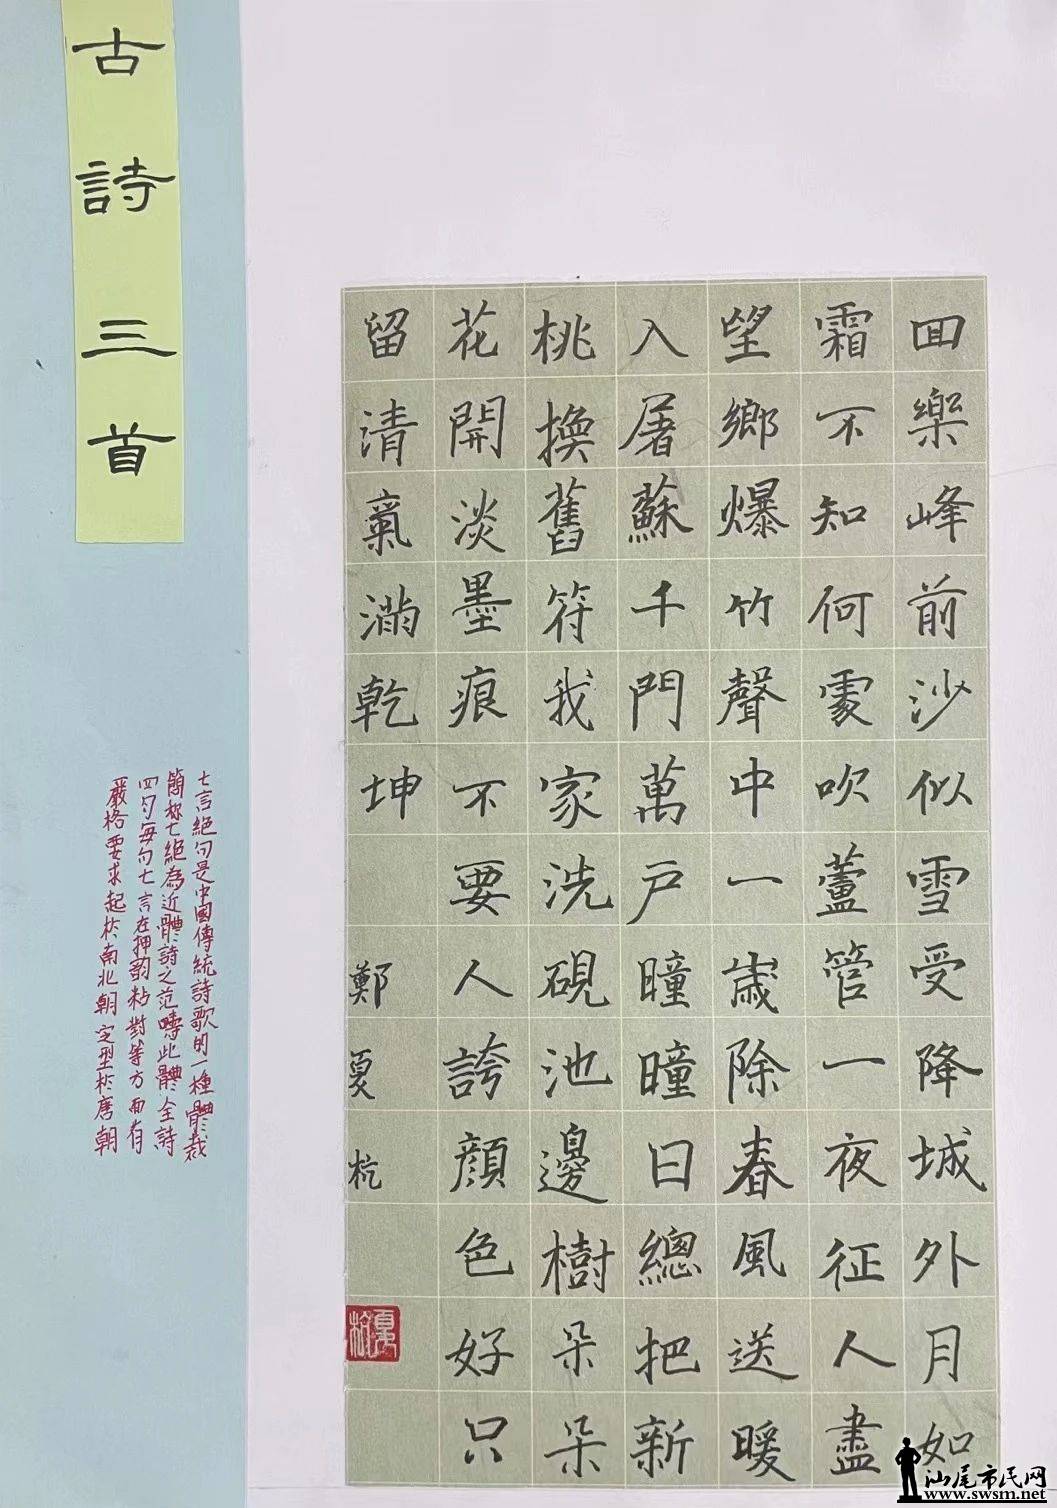 回樂峰前沙似雪受降城外月如
霜不知何處吹蘆管一夜征人盡
望鄉爆竹聲中一歲除春風送暖
入屠蘇千門萬戶曈曈日總把新
桃換舊符我家洗硯池邊樹朵朵
花開淡墨痕不要人誇顏色好只
留清氣滿乾坤 鄭夏杭
夏杭
古詩三首
七言絕句是中國傳統詩歌的一種體裁
簡称七絕為近體詩之范疇此體全詩
四句每句七言在押韵粘對等方面有
嚴格要求起於南北朝定型於唐朝
汕尾市民网
www.swsm.net